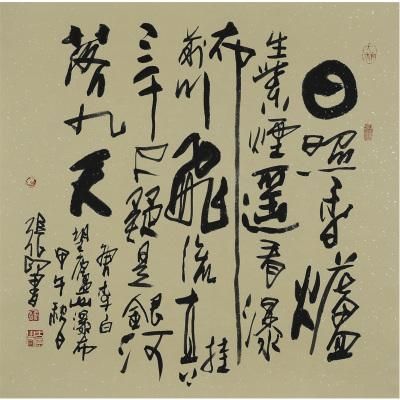 日照香爐
生紫煙遥看瀑
布挂
前川飛流直下
三千尺疑是銀河
落九天
書李白
望廬山瀑布
甲午秋
張 書